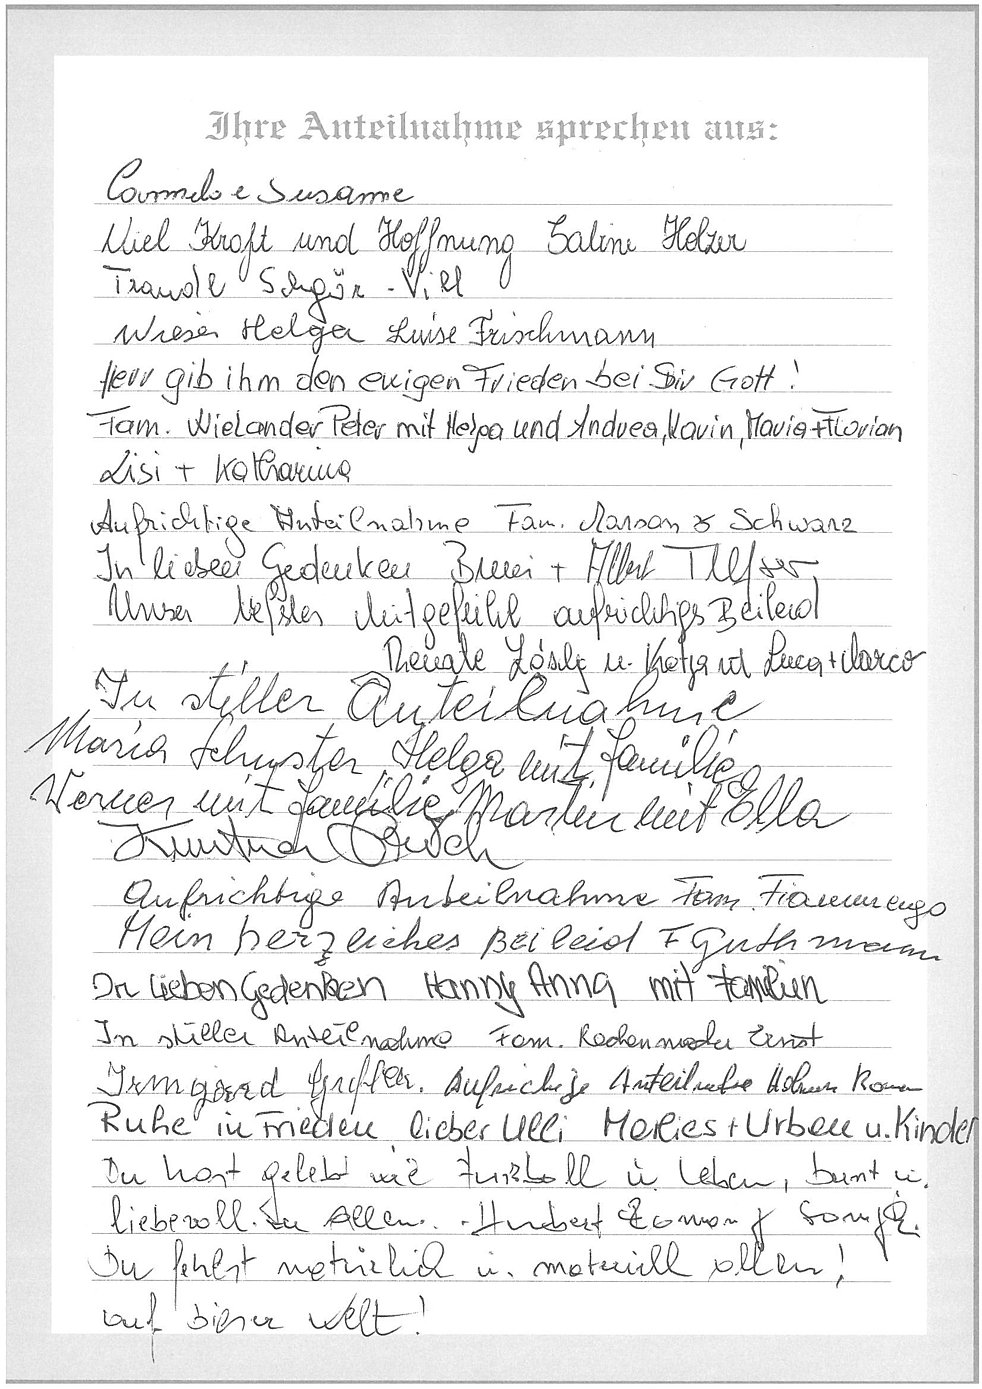 Ihre Anteilnahme sprechen aus:
Carmelo e Susanne
Viel Kraft und Hoffnung Sabine Holzer
Traudl Schgör - Vill
Wieser Helga Luise Frischmann
Herr gib ihm den ewigen Frieden bei Dir Gott!
Fam. Wielander Peter mit Helga und Andrea, Karin, Maria + Florian
Lisi + Katharina
Aufrichtige Anteilnahme Fam. & Schwarz
In lieben Gedenken + Albert
Unser Mitgefühl aufrichtigs Beileid
Renate u. Katja und Luca + Marco
In stiller Anteilnahme
Maria Schuster Helga mit Familie
Werner mit Familie Martin mit Ella
Aufrichtige Anteilnahme Fam. Fiammengo
Mein herzliches Beileid F Guthmann
In lieben Gedenken Hanny Anna mit Familien
In stiller Anteilnahme Fam. Ernst
Irmgard Aufrichtige Anteilnahme
Ruhe in Frieden lieber Ulli Marlies + Urban u. Kinder
Du hast gelebt wie Fussball u. Leben, bunt u.
liebevoll. Allen. - Hubert
Du fehlst natürlich u. materiell allen!
auf dieser Welt!